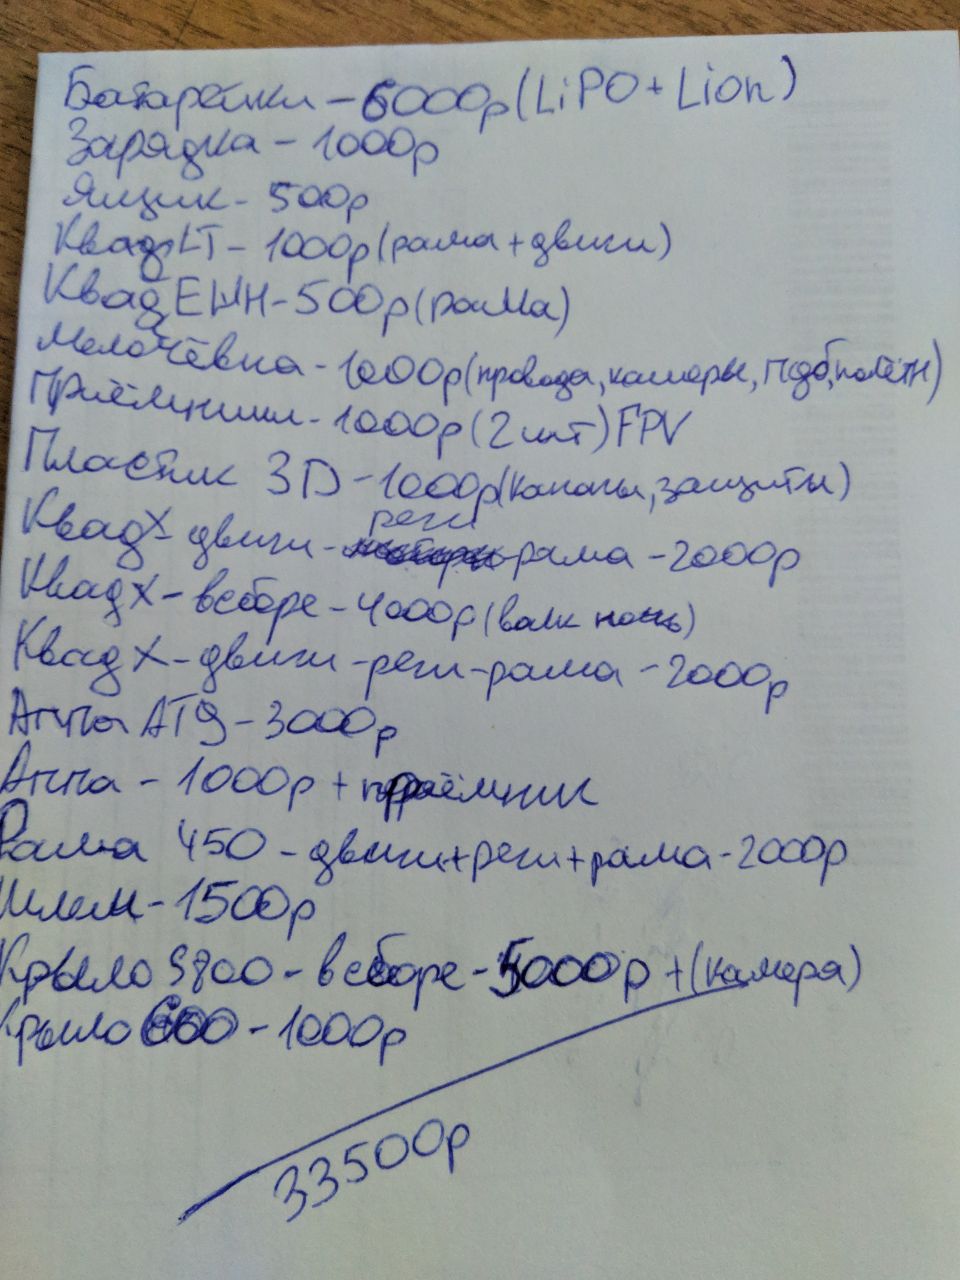 Батарейки - 6000р (LiPO + Lion)
Зарядка - 1000р
Ящик - 500р
Квад LT - 1000р (рама + двиги)
Квад ЕШН - 500р (рама)
Мелочёвка - 1000р (провода, камеры, пдб, полётн)
Приёмники - 1000р (2 шт) FPV
Пластик 3D - 1000р (капапы, защиты)
реги
Квад X - двиги - рама - 2000р
Квад X - всборе - 4000р (валк)
Квад X - двиги - реги - рама - 2000р
Аппа AT9 - 3000р
Аппа - 1000р + приёмник
Рама 450 - двиги + реги + рама - 2000р
Шлем - 1500р
Крыло S800 - всборе - 5000р + (камера)
Крыло 600 - 1000р
33500р